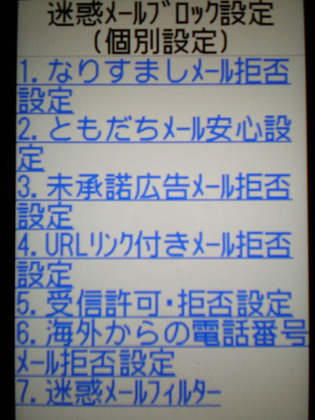 迷惑ﾒｰﾙﾌﾞﾛｯｸ設定
(個別設定)
1. なりすましﾒｰﾙ拒否
設定
2. ともだちﾒｰﾙ安心設
定
3. 未承諾広告ﾒｰﾙ拒否
設定
4. URLﾘﾝｸ付きﾒｰﾙ拒否
設定
5. 受信許可･拒否設定
6. 海外からの電話番号
ﾒｰﾙ拒否設定
7. 迷惑ﾒｰﾙﾌｨﾙﾀｰ